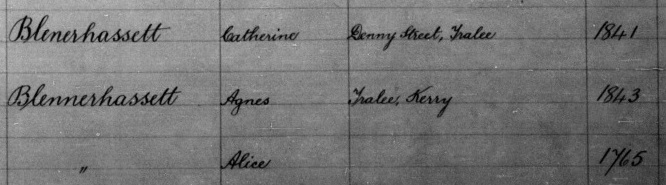 Blenerhassett Catherine Denny Street, Tralee 1841
Blennerhassett Agnes Tralee, Kerry 1843
" Alice 1765